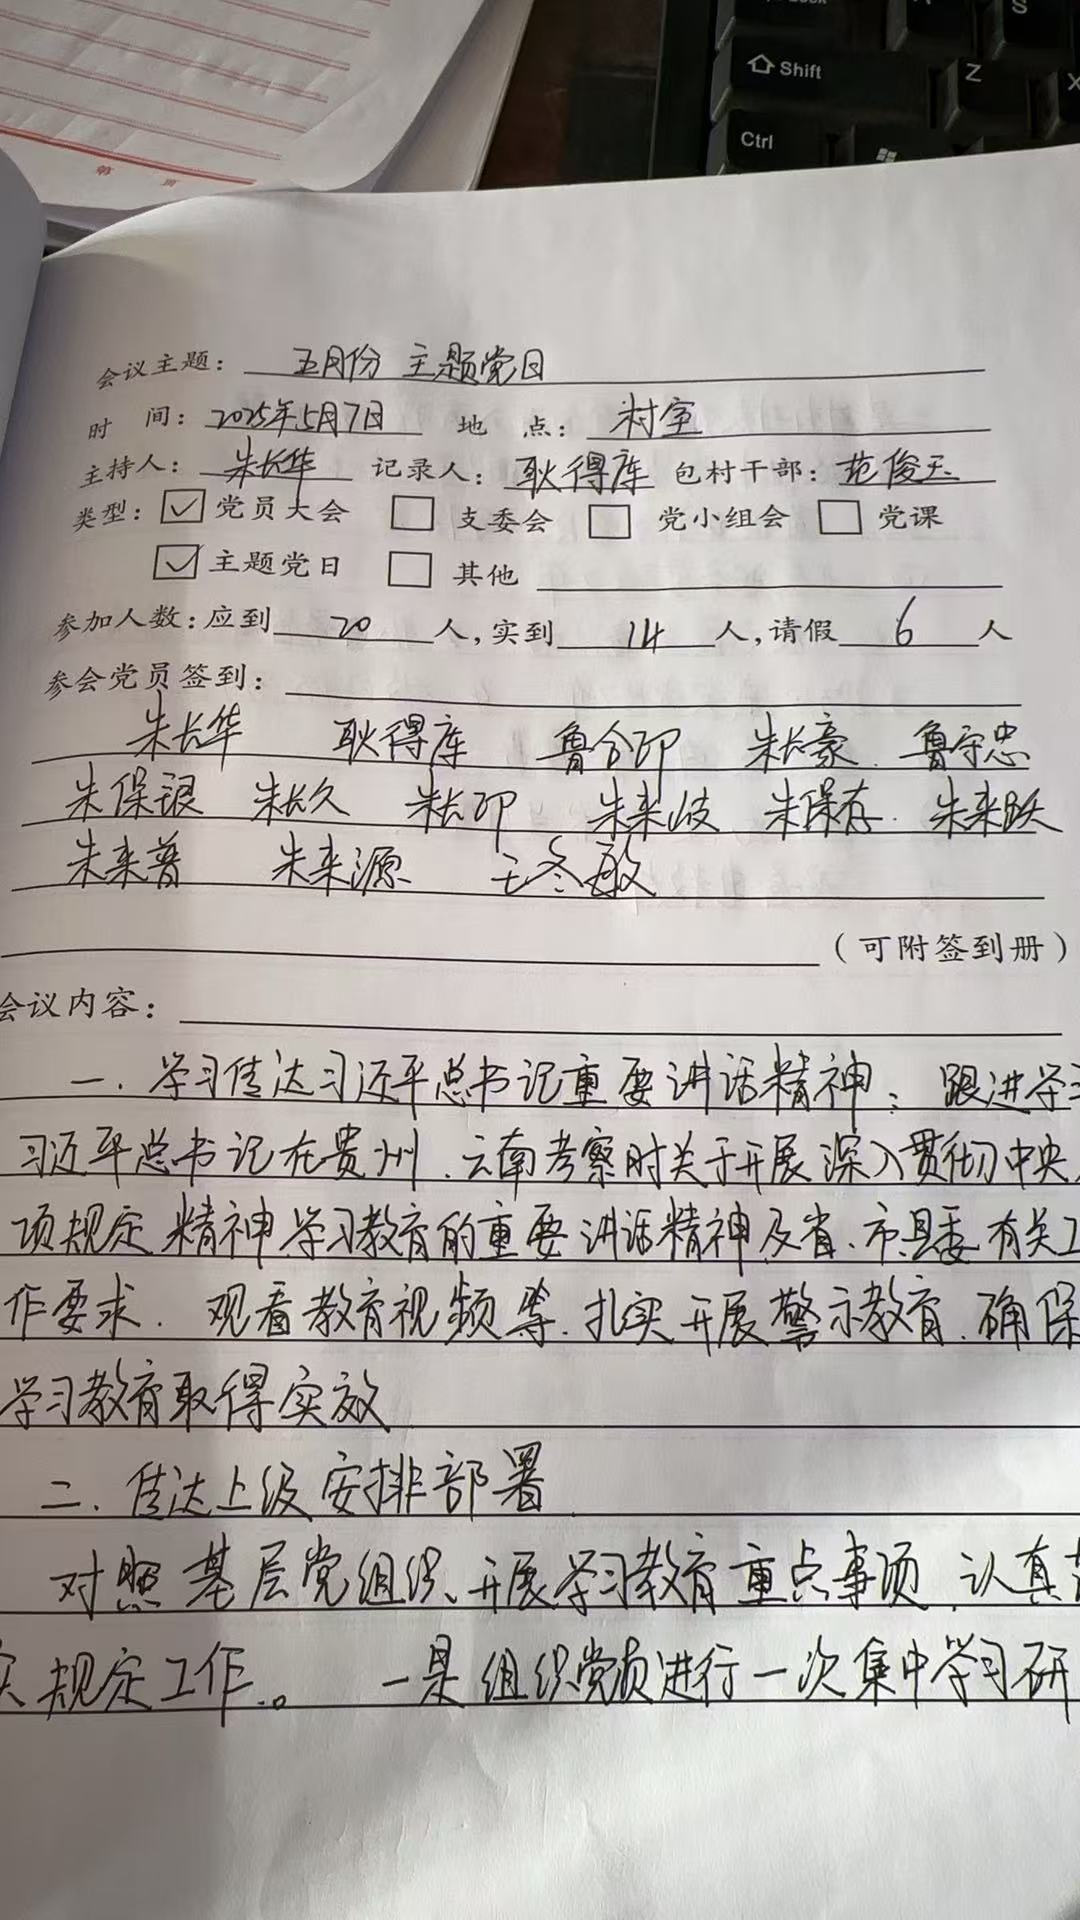 Lock
A
S
Shift
Z
X
Ctrl
第 页
会议主题：五月份 主题党日
时 间：2025年5月7日 地 点：村室
主持人：朱长华 记录人：耿得库 包村干部：范俊玉
类型：☑党员大会 □支委会 □党小组会 □党课
☑主题党日 □其他
参加人数：应到20人，实到14人，请假6人
参会党员签到：
朱长华 耿得库 鲁合印 朱长豪 鲁守忠
朱保银 朱长久 朱长印 朱来岐 朱保存 朱来跃
朱来普 朱来源 王冬敏
（可附签到册）
会议内容：
一、学习传达习近平总书记重要讲话精神；跟进学习
习近平总书记在贵州、云南考察时关于开展深入贯彻中央
项规定精神学习教育的重要讲话精神及省、市县委有关工
作要求、观看教育视频等、扎实开展警示教育、确保
学习教育取得实效
二、传达上级安排部署
对照基层党组织、开展学习教育重点事项、认真
实规定工作。 一是组织党员进行一次集中学习研